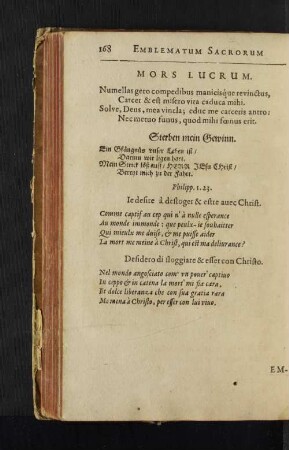 168 EMBLEMATUM SACRORUM
MORS LUCRUM.
Numellas gero compedibus manicisque revinctus,
Carcer & est misero vita caduca mihi.
Solve, Deus, mea vincla; educ me carceris antro:
Nec metuo funus, quod mihi fœnus erit.
Sterben mein Gewinn.
Ein Gfängnüs unser Leben ist/
Darinn wir ligen hart.
Mein Strick lös auff, HERR JESu CHrist/
Bereyt mich zu der Fahrt.
Philipp. 1. 23.
Ie desire à desloger & estre avec Christ.
Comme captif au cep qui n'à nulle esperance
Au monde immonde: que peulx-ie souhaitter
Qui mieulx me duise, & me puisse aider
La mort me meine à Christ, qui est ma delivrance?
Desidero di sluggiare & esser con Christo.
Nel mondo angosciato com' un pover' captivo
In ceppo & in catena la mort' mi sia cara,
Et dolce liberanza che con sua gratia rara
Me mena à Christo, per esser con lui vivo.
EM-